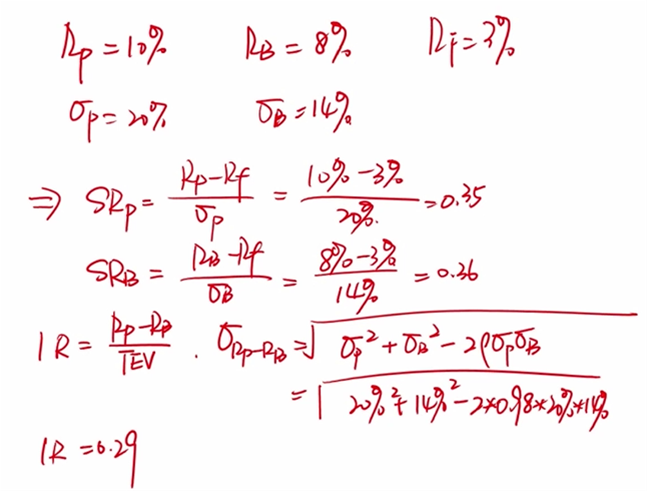 Rp = 10% RB = 8% Rf = 3%
σp = 20% σB = 14%
⇒ SRp = (Rp - Rf) / σp = (10% - 3%) / 20% = 0.35
SRB = (RB - Rf) / σB = (8% - 3%) / 14% = 0.36
IR = (Rp - RB) / TEV . σRp-RB = √(σp² + σB² - 2ρσpσB)
= √(20%² + 14%² - 2*0.98*20%*14%)
IR = 0.29